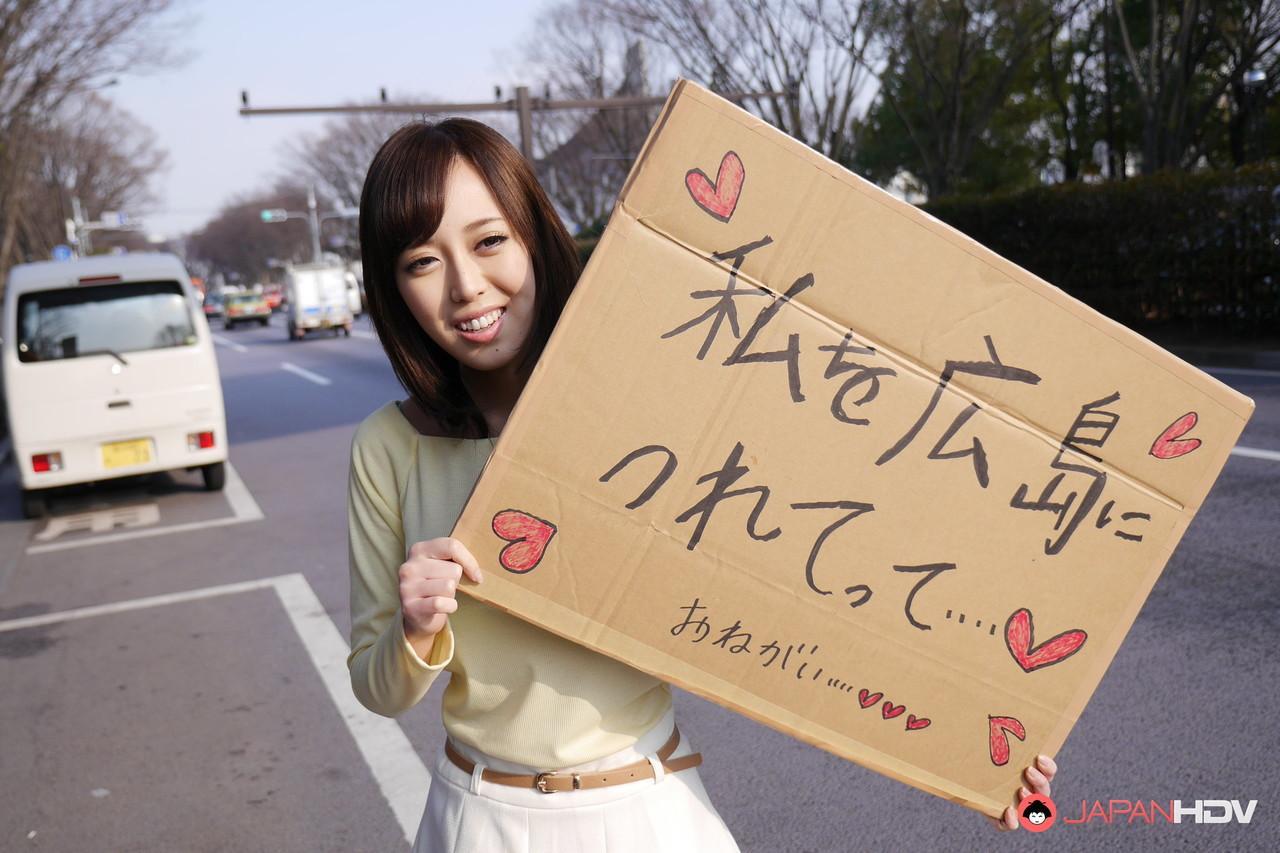 私を広島に
つれてって....
おねがい....
JAPANHDV